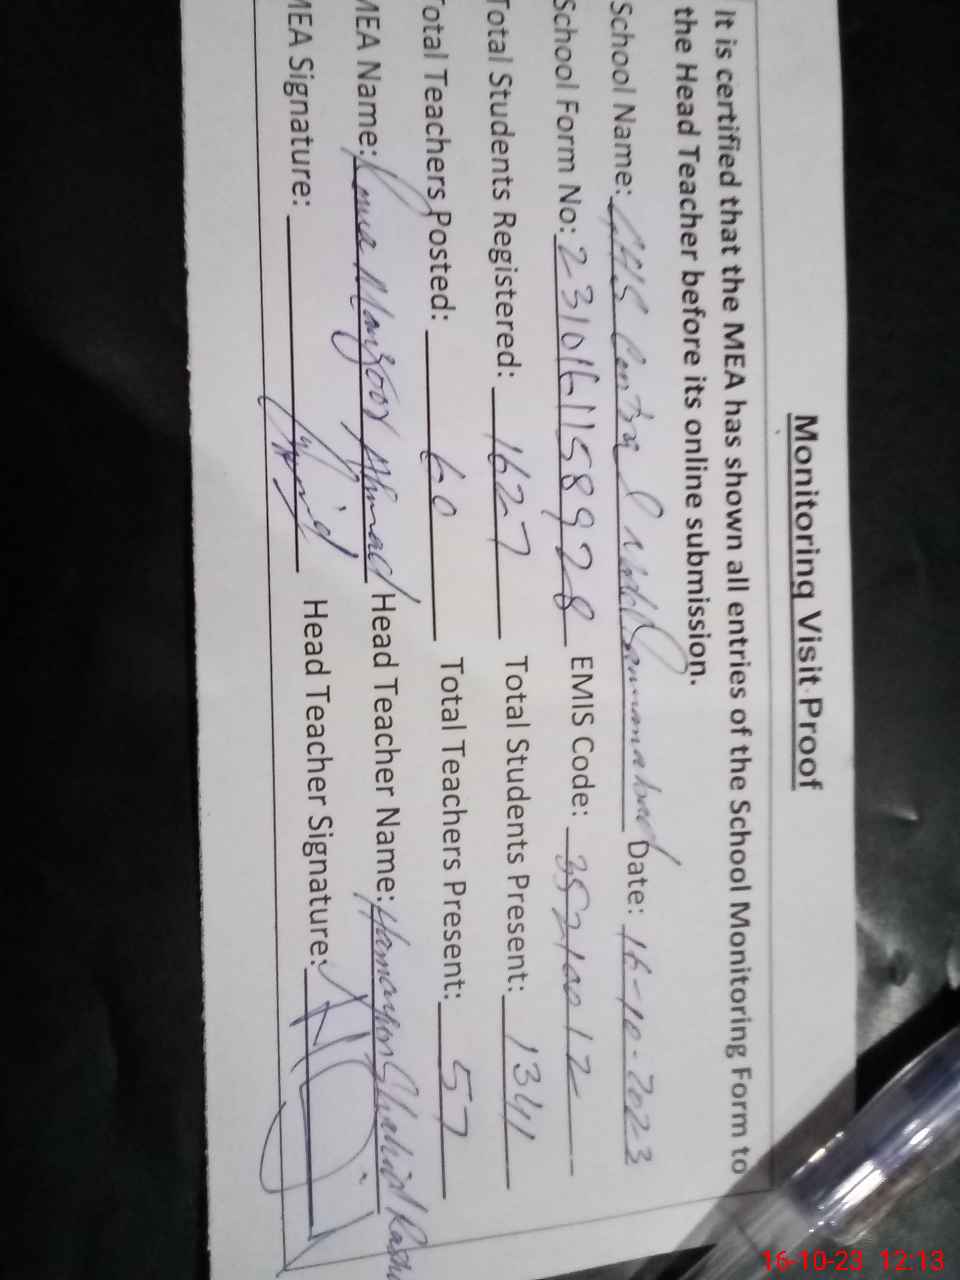 Monitoring Visit Proof
It is certified that the MEA has shown all entries of the School Monitoring Form to
the Head Teacher before its online submission.
School Name: GHS Central Model Sammanabad Date: 16-10-2023
School Form No: 2310161158928 EMIS Code: 35210012
Total Students Registered: 1627 Total Students Present: 1341
Total Teachers Posted: 60 Total Teachers Present: 57
MEA Name: Manzoor Ahmad Head Teacher Name: Hamayon Shahid
MEA Signature: Head Teacher Signature:
16-10-23 12:13